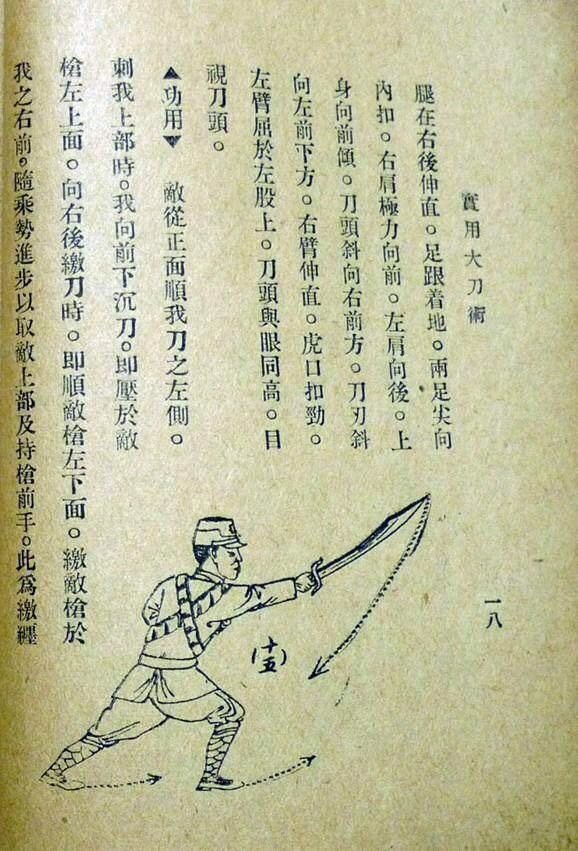 實用大刀術
一八
腿在右後伸直。足跟着地。兩足尖向
內扣。右肩極力向前。左肩向後。上
身向前傾。刀頭斜向右前方。刀刃斜
向左前下方。右臂伸直。虎口扣勁。
左臂屈於左股上。刀頭與眼同高。目
視刀頭。
▲功用▼　敵從正面順我刀之左側。
刺我上部時。我向前下沉刀。即壓於敵
槍左上面。向右後繳刀時。即順敵槍左下面。繳敵槍於
我之右前。隨乘勢進步以取敵上部及持槍前手。此爲繳纏
(十五)